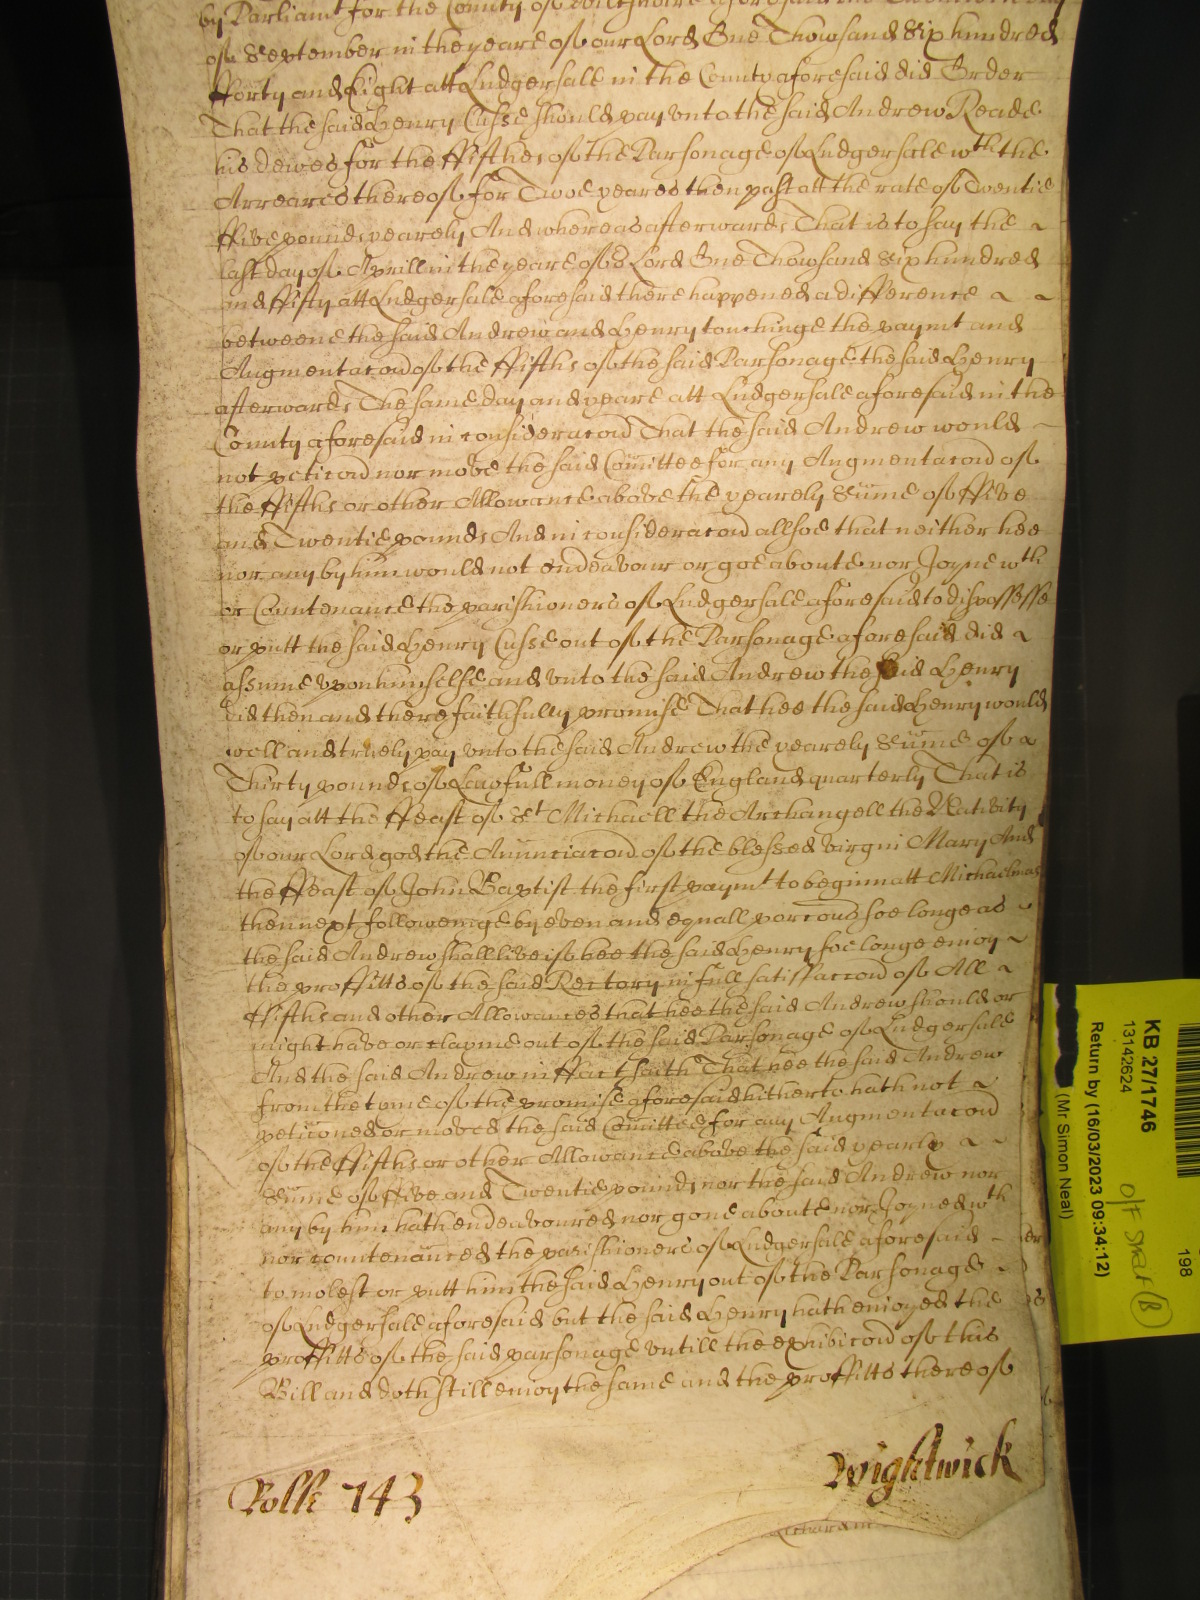 by Parliamt for the County of Wiltshire aforesaid the
of September in the yeare of our Lord One Thowsand Six hundred
fforty and Eight att Ludgersale in the County aforesaid did Order
That the said Henry Cusse should pay unto the said Andrew Reade
his dewes for the ffifthes of the Parsonage of Ludgersale wth the
Arreares thereof for Twoe yeares then past att the rate of Twentie
ffive pounds yearely And whereas afterwards That is to say the
last day of Aprill in the yeare of o Lord One Thowsand Six hundred
and ffifty att Ludgersale aforesaid there happened a difference
betweene the said Andrew and Henry touchinge the paymt and
Augmentacon of the ffifths of the said Parsonage the said Henry
afterwards The same day and yeare att Ludgersale aforesaid in the
County aforesaid in consideracon That the said Andrew would
not peticon nor move the said Comittee for any Augmentacon of
the ffifths or other Allowance above the yearely Sume of ffive
and Twentie pounds And in consideracon allsoe that neither hee
nor any by him would not endeavour or goe aboute nor Joyne wth
or Countenance the parishioners of Ludgersale aforesaid to dispossesse
or putt the said Henry Cusse out of the Parsonage aforesaid did
assume upon himselfe and unto the said Andrew the said Henry
did then and there faithfully promise That hee the said Henry would
well and truely pay unto the said Andrew the yearely Sume of
Thirty pounds of Lawfull money of England quarterly That is
to say att the ffeast of St Michaell the Archangell the Nativity
of our Lord god the Anunciacon of the blessed virgin Mary And
the ffeast of John Baptist the first paymt to beginn att Michaelmas
then next followeinge by even and equall porcons soe longe as
the said Andrew shall live if hee the said Henry soe longe enioy
the proffitts of the said Rectory in full satisfaccon of All
ffifths and other Allowances that hee the said Andrew should or
might have or clayme out of the said Parsonage of Ludgersale
And the said Andrew in ffact saith That hee the said Andrew
from the tyme of the promise aforesaid hitherto hath not
peticoned or moved the said Comittee for any Augmentacon
of the ffifths or other Allowance above the said yearly
Sume of ffive and Twentie pounds nor the said Andrew nor
any by him hath endeavoured nor gone aboute nor Joyned wth
nor countenanced the parishioners of Ludgersale aforesaid
to molest or putt him the said Henry out of the Parsonage
of Ludgersale aforesaid but the said Henry hath enioyed the
proffitts of the said parsonage untill the exhibicon of this
Bill and doth still enioy the same and the proffitts thereof
Rolle 743
Wightwick
KB 27/1746
13142624
Return by (16/03/2023 09:34:12)
(Mr Simon Neal)
198